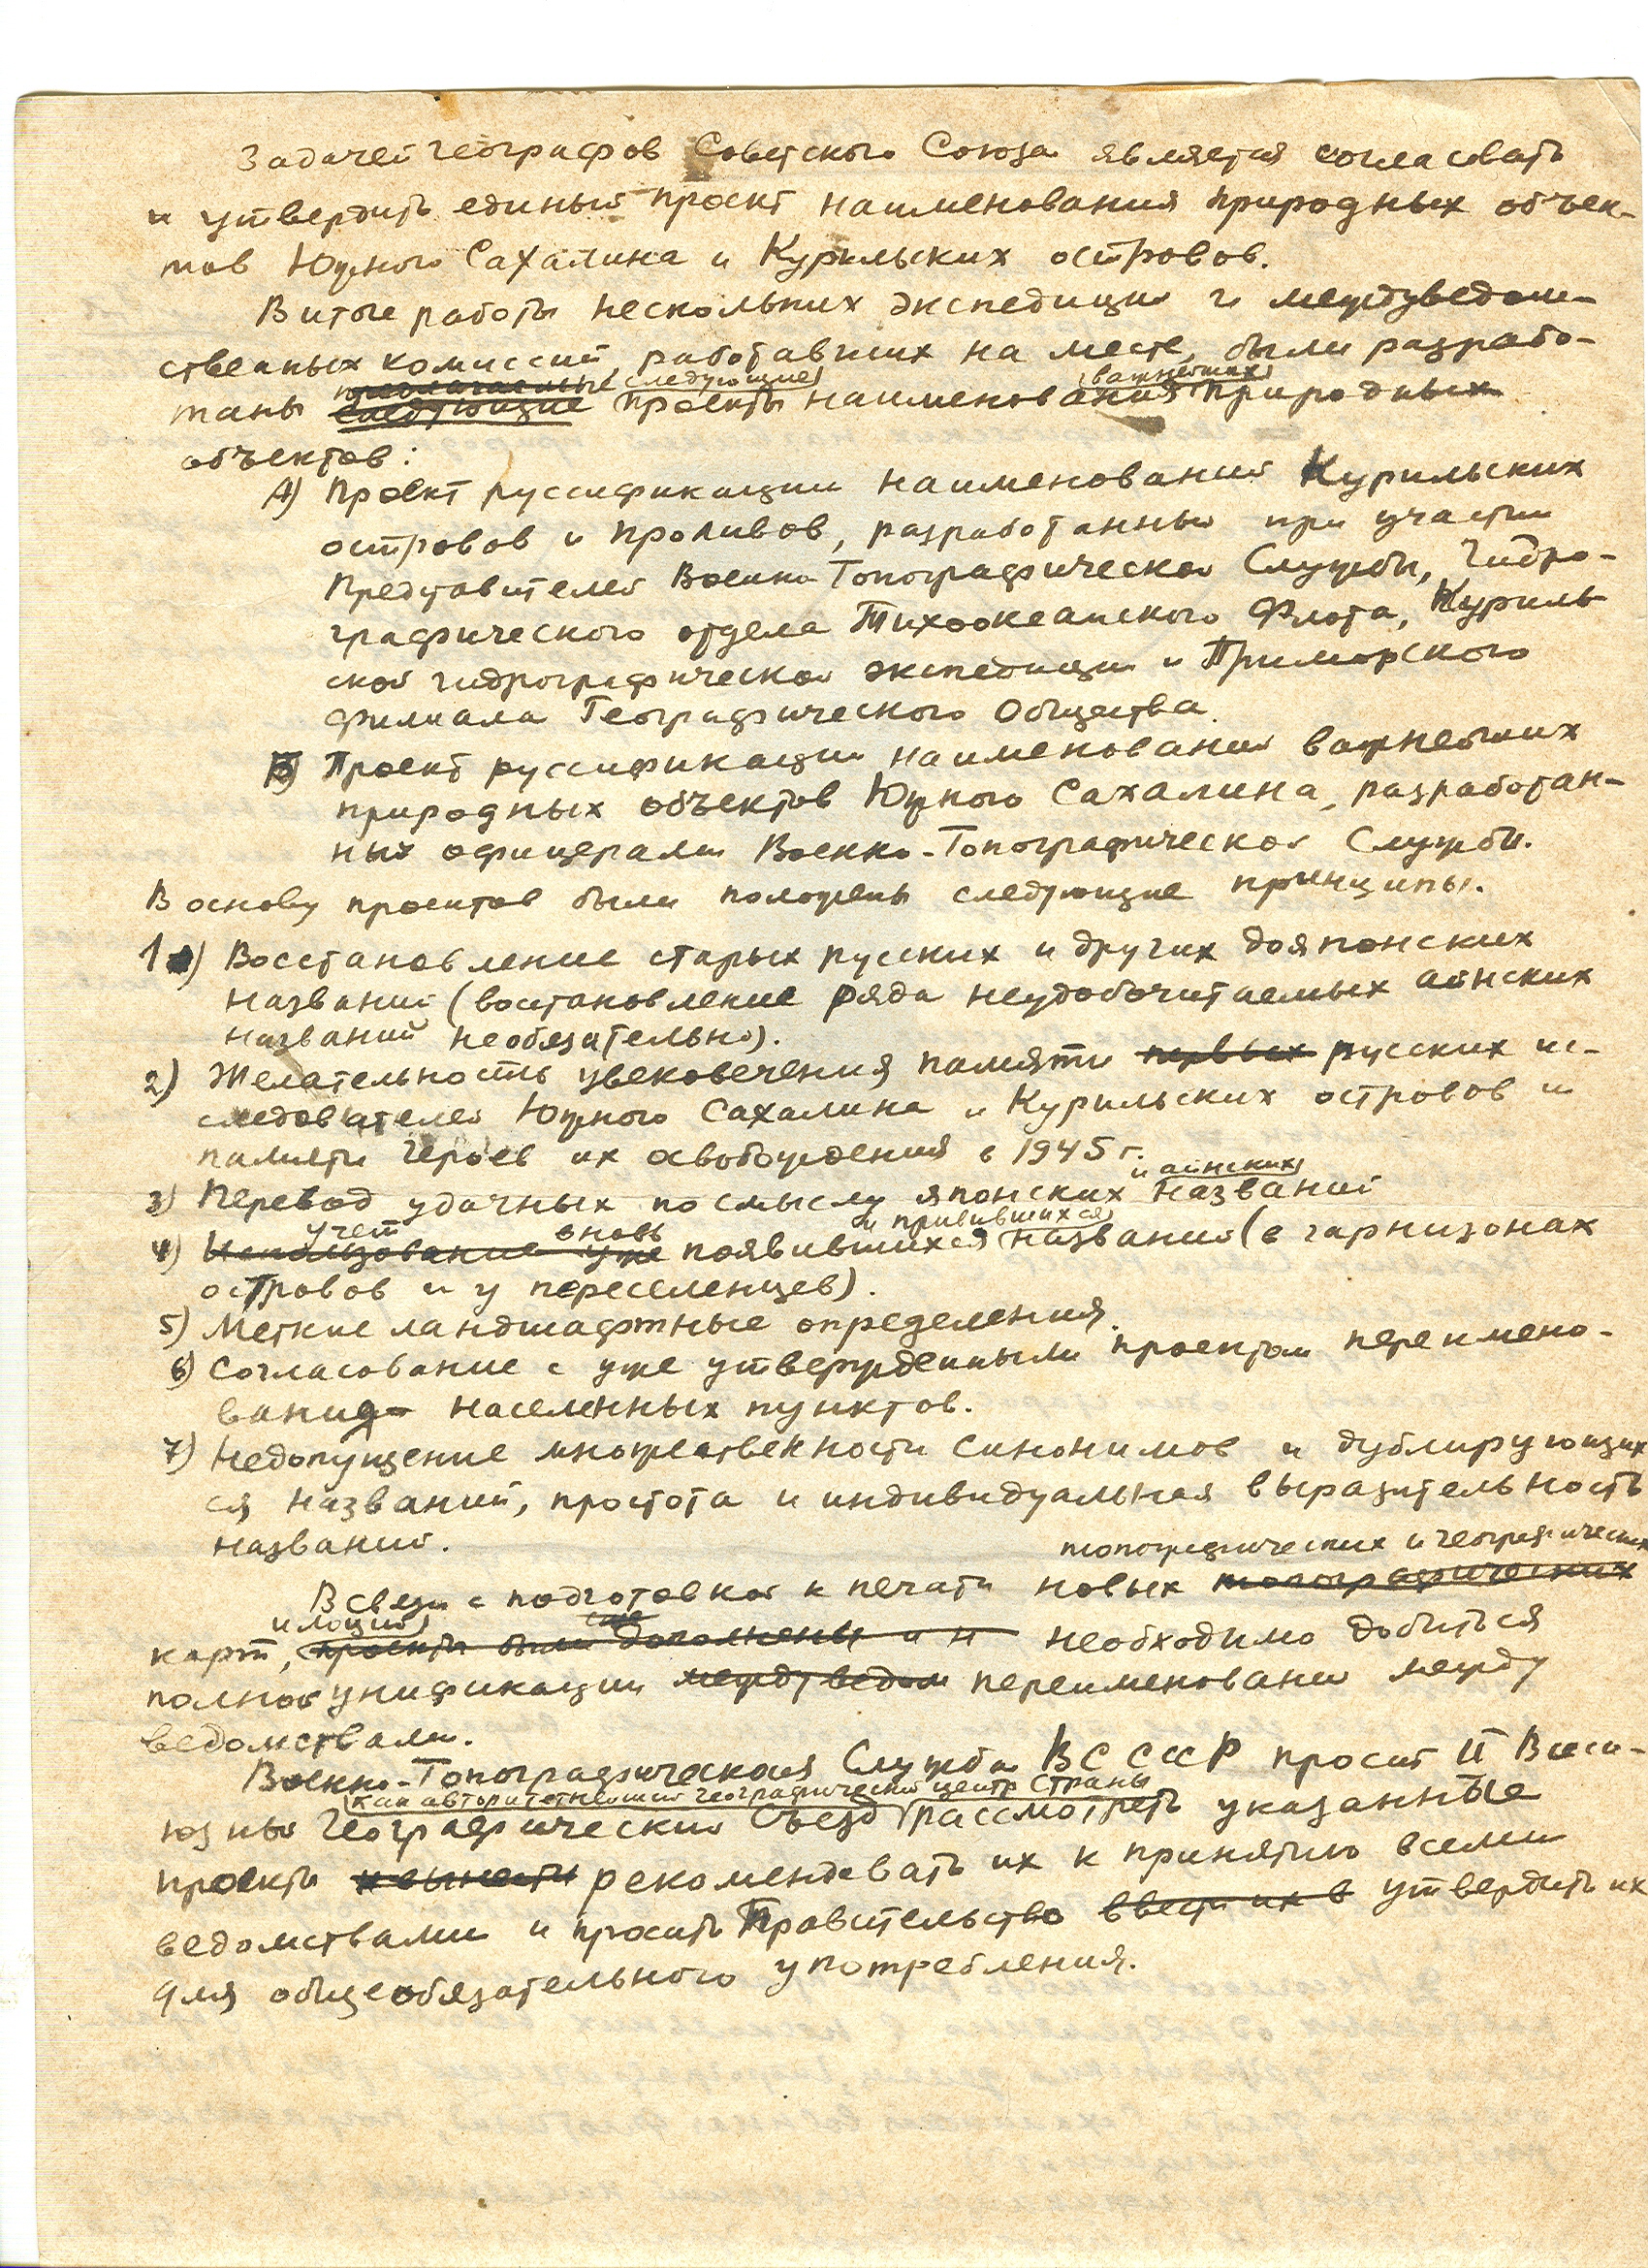 Задачей географов Советского Союза является согласовать
и утвердить единый проект наименования природных объек-
тов Южного Сахалина и Курильских островов.
В итоге работы нескольких экспедиций и междуведом-
ственных комиссий, работавших на месте, были разрабо-
предлагаемые следующие важнейших
таны следующие проекты наименования природных
объектов:
А) Проект руссификации наименований Курильских
островов и проливов, разработанный при участии
Представителей Военно-Топографической Службы, Гидро-
графического отдела Тихоокеанского Флота, Куриль
ской гидрографической экспедиции и Приморского
филиала Географического Общества.
Б) Проект руссификации наименований важнейших
природных объектов Южного Сахалина, разработан-
ный офицерами Военно-Топографической Службы.
В основу проектов были положены следующие принципы.
1) Восстановление старых русских и других дояпонских
названий (восстановление ряда неудобочитаемых айнских
названий необязательно).
2) Желательность увековечения памяти первых русских ис-
следователей Южного Сахалина и Курильских островов и
памяти героев их освобождения в 1945 г.
и айнских
3) Перевод удачных по смыслу японских названий
учет вновь и привившихся
4) Использование уже появившихся названий (в гарнизонах
островов и у переселенцев).
5) Меткие ландшафтные определения.
6) Согласование с уже утвержденными проектом переимено-
вания населенных пунктов.
7) Недопущение множественности синонимов и дублирующих
ся названий, простота и индивидуальная выразительность
названий.
топографических и географических
В связи с подготовкой к печати новых топографических
и лоций еще
карт, проекты были дополнены и н необходимо добиться
полной унификации междуведом переименований между
ведомствами.
Военно-Топографическая Служба ВС СССР просит II Всесо-
как авторитетнейший географический центр страны
юзный Географический Съезд рассмотреть указанные
проекты и вынести рекомендовать их к принятию всеми
ведомствами и просить Правительство ввести их в утвердить их
для общеобязательного употребления.